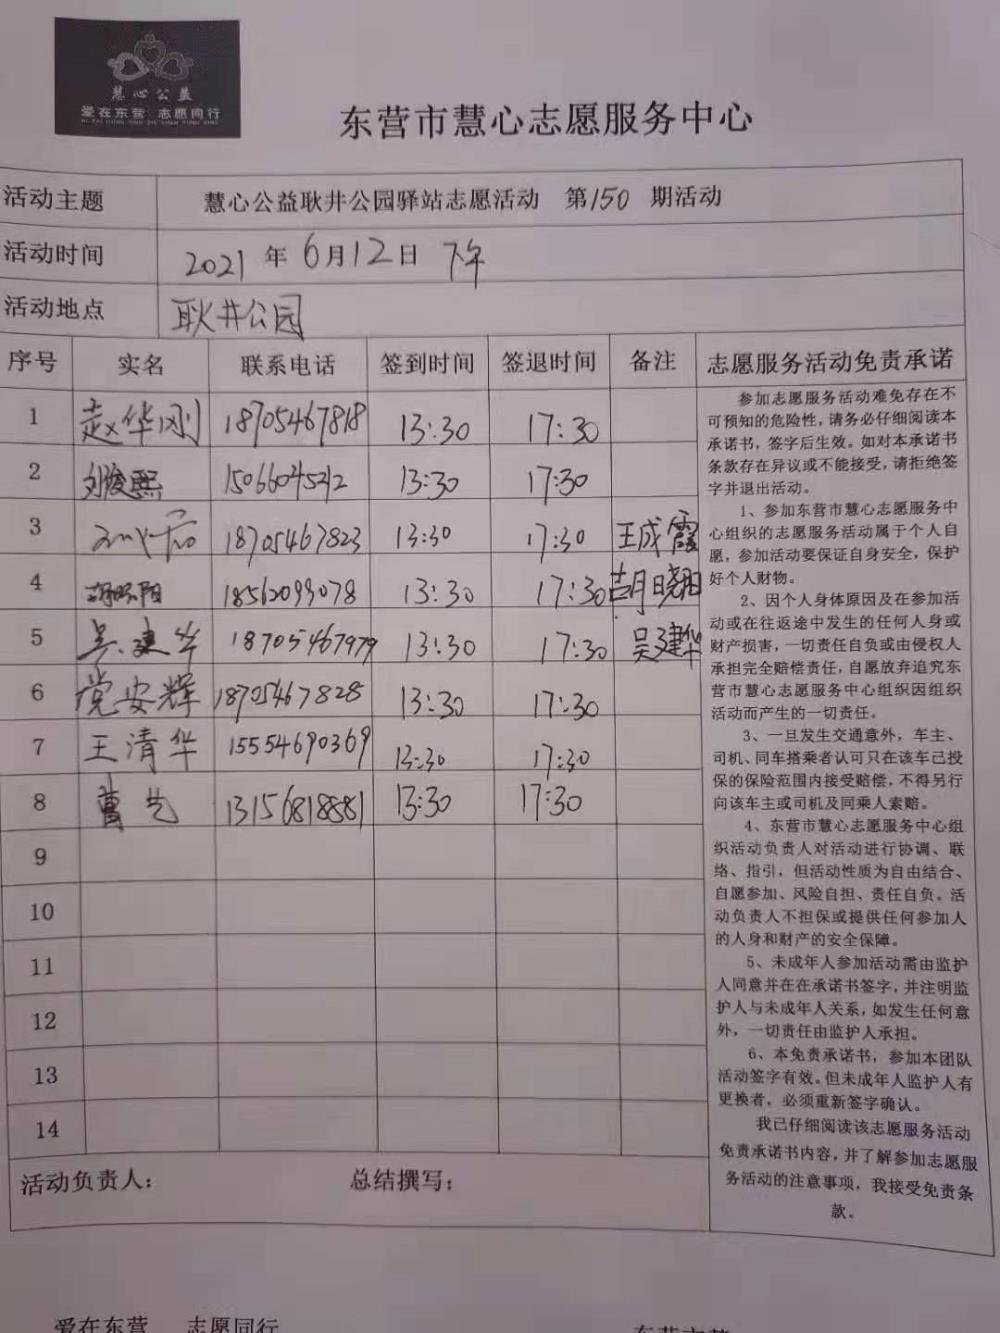 慧心公益
爱在东营 志愿同行
东营市慧心志愿服务中心
活动主题 慧心公益耿井公园驿站志愿活动 第150期活动
活动时间 2021年6月12日 下午
活动地点 耿井公园
序号 实名 联系电话 签到时间 签退时间 备注 志愿服务活动免责承诺
1 赵华刚 18705467818 13:30 17:30
2 刘俊熙 13:30 17:30
3 18705467823 13:30 17:30 王成霞
4 胡晓阳 18562093078 13:30 17:30 胡晓阳
5 吴建华 18705467979 13:30 17:30 吴建华
6 党安辉 18705467828 13:30 17:30
7 王清华 15554690369 13:30 17:30
8 曹艺 13156818881 13:30 17:30
9
10
11
12
13
14
参加志愿服务活动难免存在不
可预知的危险性，请务必仔细阅读本
承诺书，签字后生效。如对本承诺书
条款存在异议或不能接受，请拒绝签
字并退出活动。
1、参加东营市慧心志愿服务中
心组织的志愿服务活动属于个人自
愿，参加活动要保证自身安全，保护
好个人财物。
2、因个人身体原因及在参加活
动或在往返途中发生的任何人身或
财产损害，一切责任自负或由侵权人
承担完全赔偿责任，自愿放弃追究东
营市慧心志愿服务中心组织因组织
活动而产生的一切责任。
3、一旦发生交通意外，车主、
司机、同车搭乘者认可只在该车已投
保的保险范围内接受赔偿，不得另行
向该车主或司机及同乘人索赔。
4、东营市慧心志愿服务中心组
织活动负责人对活动进行协调、联
络、指引，但活动性质为自由结合、
自愿参加、风险自担、责任自负。活
动负责人不担保或提供任何参加人
的人身和财产的安全保障。
5、未成年人参加活动需由监护
人同意并在在承诺书签字，并注明监
护人与未成年人关系，如发生任何意
外，一切责任由监护人承担。
6、本免责承诺书，参加本团队
活动签字有效。但未成年人监护人有
更换者，必须重新签字确认。
我已仔细阅读该志愿服务活动
免责承诺书内容，并了解参加志愿服
务活动的注意事项，我接受免责条
款。
活动负责人： 总结撰写：
爱在东营 志愿同行